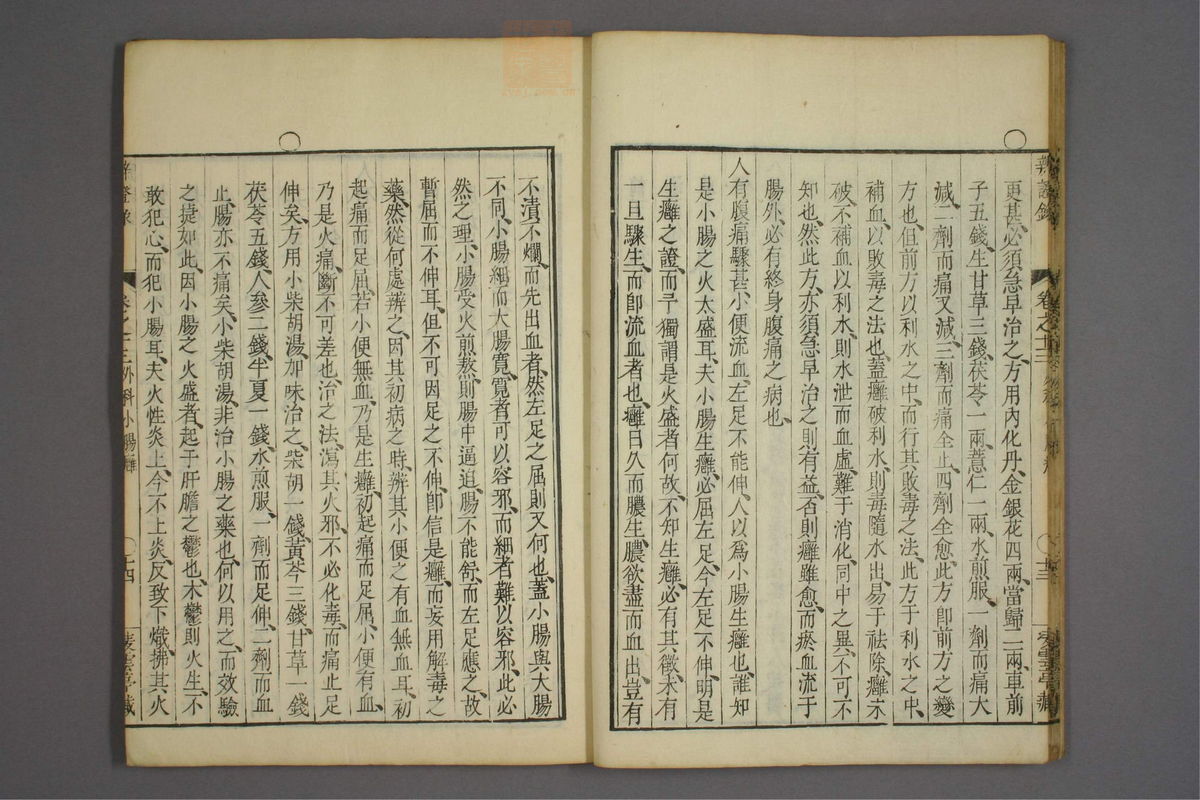 辨證錄 卷之十三
更甚必須急早治之方用內化丹、金銀花四兩、當歸二兩、車前
子五錢、生甘草三錢、茯苓一兩、薏仁一兩、水煎服、一劑而痛大
減、二劑而痛又減、三劑而痛全止、四劑全愈、此方卽前方之變
方也、但前方以利水之中、而行其敗毒之法、此方于利水之中、
補血以敗毒之法也、蓋癰破利水則毒隨水出、易于祛除、癰未
破不補血以利水、則水泄而血虛、難于消化、同中之異、不可不
知也、然此方亦須急早治之則有益、否則癰雖愈、而瘀血流于
腸外、必有終身腹痛之病也、
人有腹痛驟甚、小便流血、左足不能伸、人以為小腸生癰也、誰知
是小腸之火太盛耳、夫小腸生癰、必屈左足、今左足不伸、明是
生癰之證、而予獨謂是火盛者何故、不知生癰、必有其徵、未有
一旦驟生、而卽流血者也、癰日久而膿生、膿欲盡而血出、豈有
不潰不爛、而先出血者、然左足之屈則又何也、蓋小腸與大腸
不同、小腸細而大腸寬、寬者可以容邪、而細者難以容邪、此必
然之理、小腸受火煎熬、則腸中逼迫、腸不能舒、而左足應之、故
暫屈而不伸耳、但不可因足之不伸、卽信是癰、而妄用解毒之
藥、然從何處辨之、因其初病之時、辨其小便之有血無血耳、初
起痛而足屈、若小便無血、乃是生癰、初起痛而足屈、小便有血、
乃是火痛、斷不可差也、治之法、瀉其火邪、不必化毒、而痛止足
伸矣、方用小柴胡湯、加味治之、柴胡一錢、黃芩三錢、甘草一錢
茯苓五錢、人參二錢、半夏一錢、水煎服、一劑而足伸、二劑而血
止、腸亦不痛矣、小柴胡湯、非治小腸之藥也、何以用之、而效驗
之捷如此、因小腸之火盛者、起于肝膽之鬱也、木鬱則火生、不
敢犯心、而犯小腸耳、夫火性炎上、今不上炎、反致下熾、拂其火
卷之十三 外科小腸癰 十四